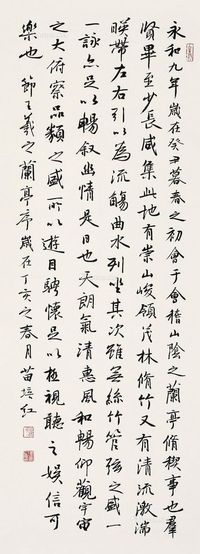 永和九年歲在癸丑暮春之初會于會稽山陰之蘭亭脩禊事也羣
賢畢至少長咸集此地有崇山峻領茂林脩竹又有清流激湍
暎帶左右引以為流觴曲水列坐其次雖無絲竹管弦之盛一
一詠亦足以暢叙幽情是日也天朗氣清惠風和暢仰觀宇宙
之大俯察品類之盛所以遊目騁懷足以極視聽之娛信可
樂也 節王羲之蘭亭序歲在丁亥之春月苗培红